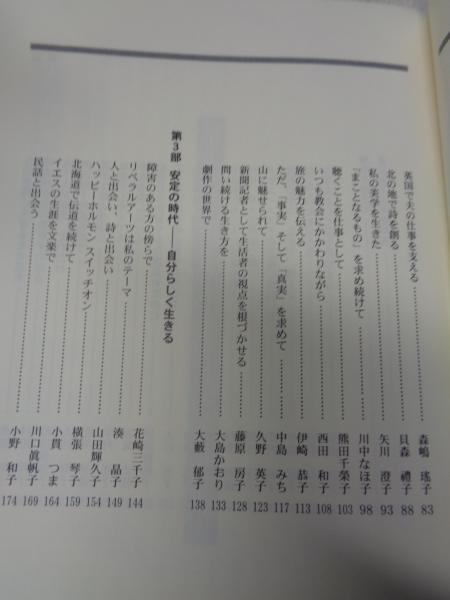 英国で夫の仕事を支える……森嶋 瑤子 83
北の地で詩を創る……貝森 禮子 88
私の美学を生きた……矢川 澄子 93
『まことなるもの』を求め続けて……川中なほ子 98
聴くことを仕事として……熊田千栄子 103
いつも教会にかかわりながら……西田 和子 108
旅の魅力を伝える……伊崎 恭子 113
ただ、「事実」そして「真実」を求めて……中島 みち 117
山に魅せられて……久野 英子 123
新聞記者として生活者の視点を根づかせる……藤原 房子 128
問い続ける生き方を……大島かおり 133
劇作の世界で……大藪 郁子 138
第3部 安定の時代――自分らしく生きる
障害のある方の傍らで……花崎三千子 144
リベラルアーツは私のテーマ……湊 晶子 149
人と出会い、詩と出会い……山田輝久子 154
ハッピーホルモン スイッチオン……横張 琴子 159
北海道で伝道を続けて……小貫 つま 164
イエスの生涯を文楽で……川口眞帆子 169
民話と出会う……小野 和子 174